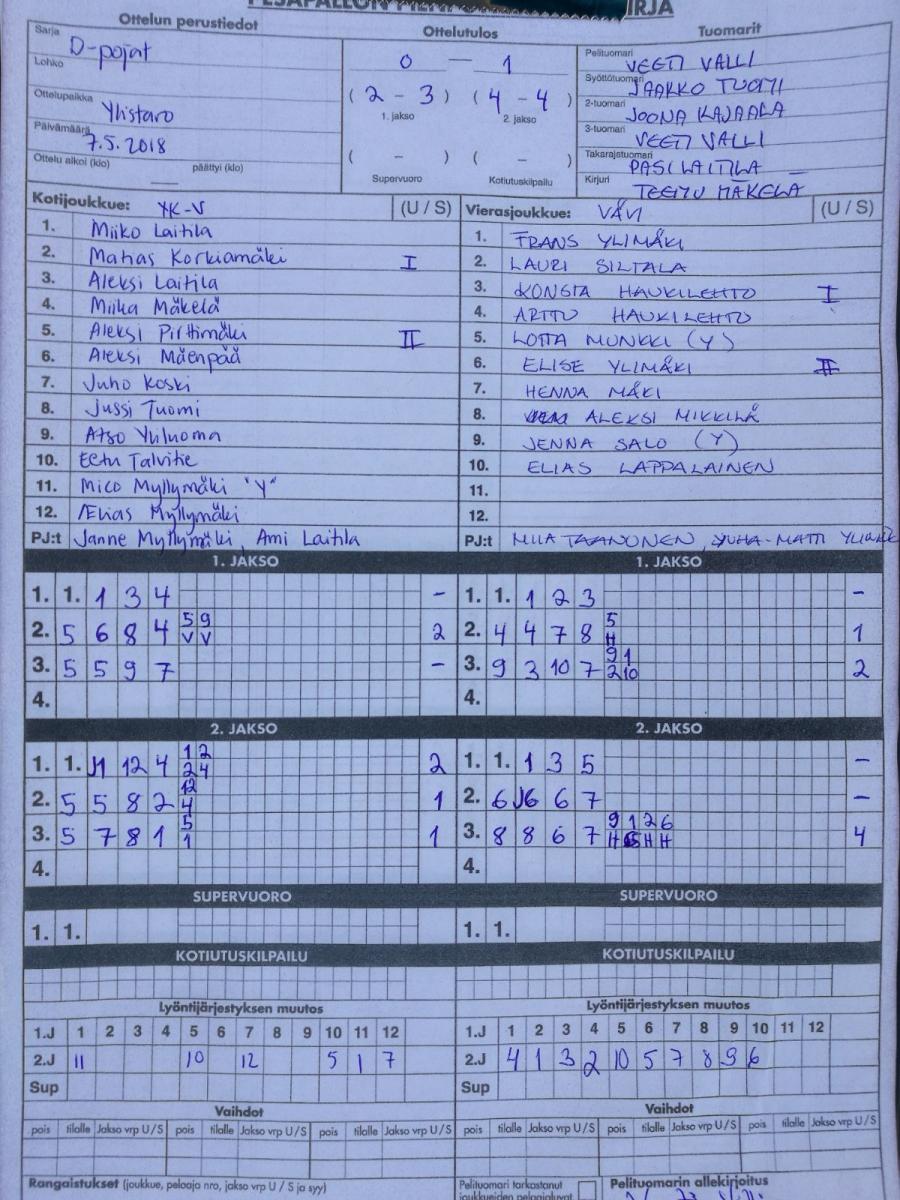 PESÄPALLON PIENI
KIRJA
Ottelun perustiedot
Sarja D-pojat
Lohko
Ottelupaikka Ylistaro
Päivämäärä 7.5.2018
Ottelu alkoi (klo) päättyi (klo)
Ottelutulos
0 — 1
(2 - 3) (4 - 4)
1. jakso 2. jakso
( - ) ( - )
Supervuoro Kotiutuskilpailu
Tuomarit
Pelituomari VEETI VALLI
Syöttötuomari JAAKKO TUOMI
2-tuomari JOONA KAJAALA
3-tuomari VEETI VALLI
Takarajatuomari PASI LAITILA
Kirjuri TEEMU MÄKELÄ
Kotijoukkue: YK-V (U / S)
1. Miiko Laitila
2. Matias Korkiamäki I
3. Aleksi Laitila
4. Miika Mäkelä
5. Aleksi Pirttimäki II
6. Aleksi Mäenpää
7. Juho Koski
8. Jussi Tuomi
9. Atso Yliluoma
10. Eetu Talvitie
11. Mico Myllymäki "Y"
12. Elias Myllymäki
PJ:t Janne Myllymäki, Ami Laitila
Vierasjoukkue: VÄVI (U / S)
1. FRANS YLIMÄKI
2. LAURI SILTALA
3. KONSTA HAUKILEHTO I
4. ARTTU HAUKILEHTO
5. LOTTA MUNKKI (Y)
6. ELISE YLIMÄKI II
7. HENNA MÄKI
8. ALEKSI MIKKILÄ
9. JENNA SALO (Y)
10. ELIAS LAPPALAINEN
11.
12.
PJ:t MIIA TAANONEN, JUHA-MATTI
1. JAKSO
1. 1. 1 3 4 -
5 9
2. 5 6 8 4 V V 2
3. 5 5 9 7 -
4.
1. JAKSO
1. 1. 1 2 3 -
5
2. 4 4 7 8 H 1
9 1
3. 9 3 10 7 2 10 2
4.
2. JAKSO
1 2
1. 1. J1 12 4 2 4 2
12
2. 5 5 8 2 4 1
5
3. 5 7 8 1 1 1
4.
2. JAKSO
1. 1. 1 3 5 -
2. 6 J6 6 7 -
9 1 2 6
3. 8 8 6 7 H H H 4
4.
SUPERVUORO
1. 1.
SUPERVUORO
1. 1.
KOTIUTUSKILPAILU
KOTIUTUSKILPAILU
Lyöntijärjestyksen muutos
1.J 1 2 3 4 5 6 7 8 9 10 11 12
2.J 11 10 12 5 1 7
Sup
Lyöntijärjestyksen muutos
1.J 1 2 3 4 5 6 7 8 9 10 11 12
2.J 4 1 3 2 10 5 7 8 9 6
Sup
Vaihdot
pois tilalle Jakso vrp U / S pois tilalle Jakso vrp U / S pois tilalle Jakso vrp U / S
Vaihdot
pois tilalle Jakso vrp U / S pois tilalle Jakso vrp U / S pois tilalle Jakso vrp U / S
Rangaistukset (joukkue, pelaaja nro, jakso vrp U / S ja syy)
Pelituomari tarkastanut
joukkueiden pelaajaluvat
Pelituomarin allekirjoitus